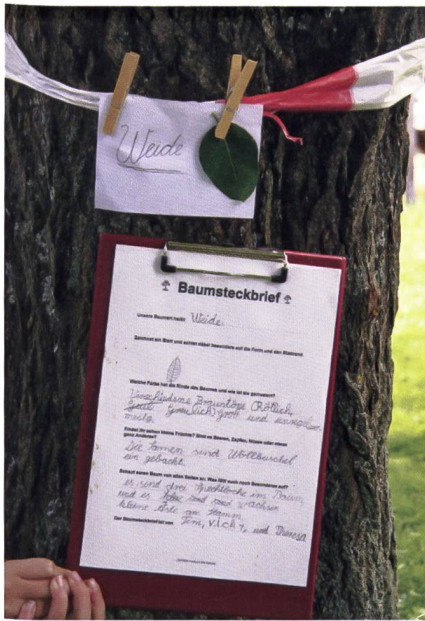 Weide
Baumsteckbrief
Unsere Baumart heißt: Weide
Zeichnet ein Blatt und achtet dabei besonders auf die Form und den Blattrand.
Welche Farbe hat die Rinde des Baumes und wie ist sie gemustert?
Verschiedene Brauntöne (Rötlich,
Gräulich) grob und
Findet ihr schon kleine Früchte? Sind es Beeren, Zapfen, Nüsse oder etwas
ganz Anderes?
Die Samen sind Wollbuschel
ein gebackt.
Schaut euren Baum von allen Seiten an: Was fällt euch noch Besonderes auf?
es sind drei Spechtlöcher im Baum
und es wachsen
kleine Äste am Stamm
Der Baumsteckbrief ist von: Tim, und Theresa